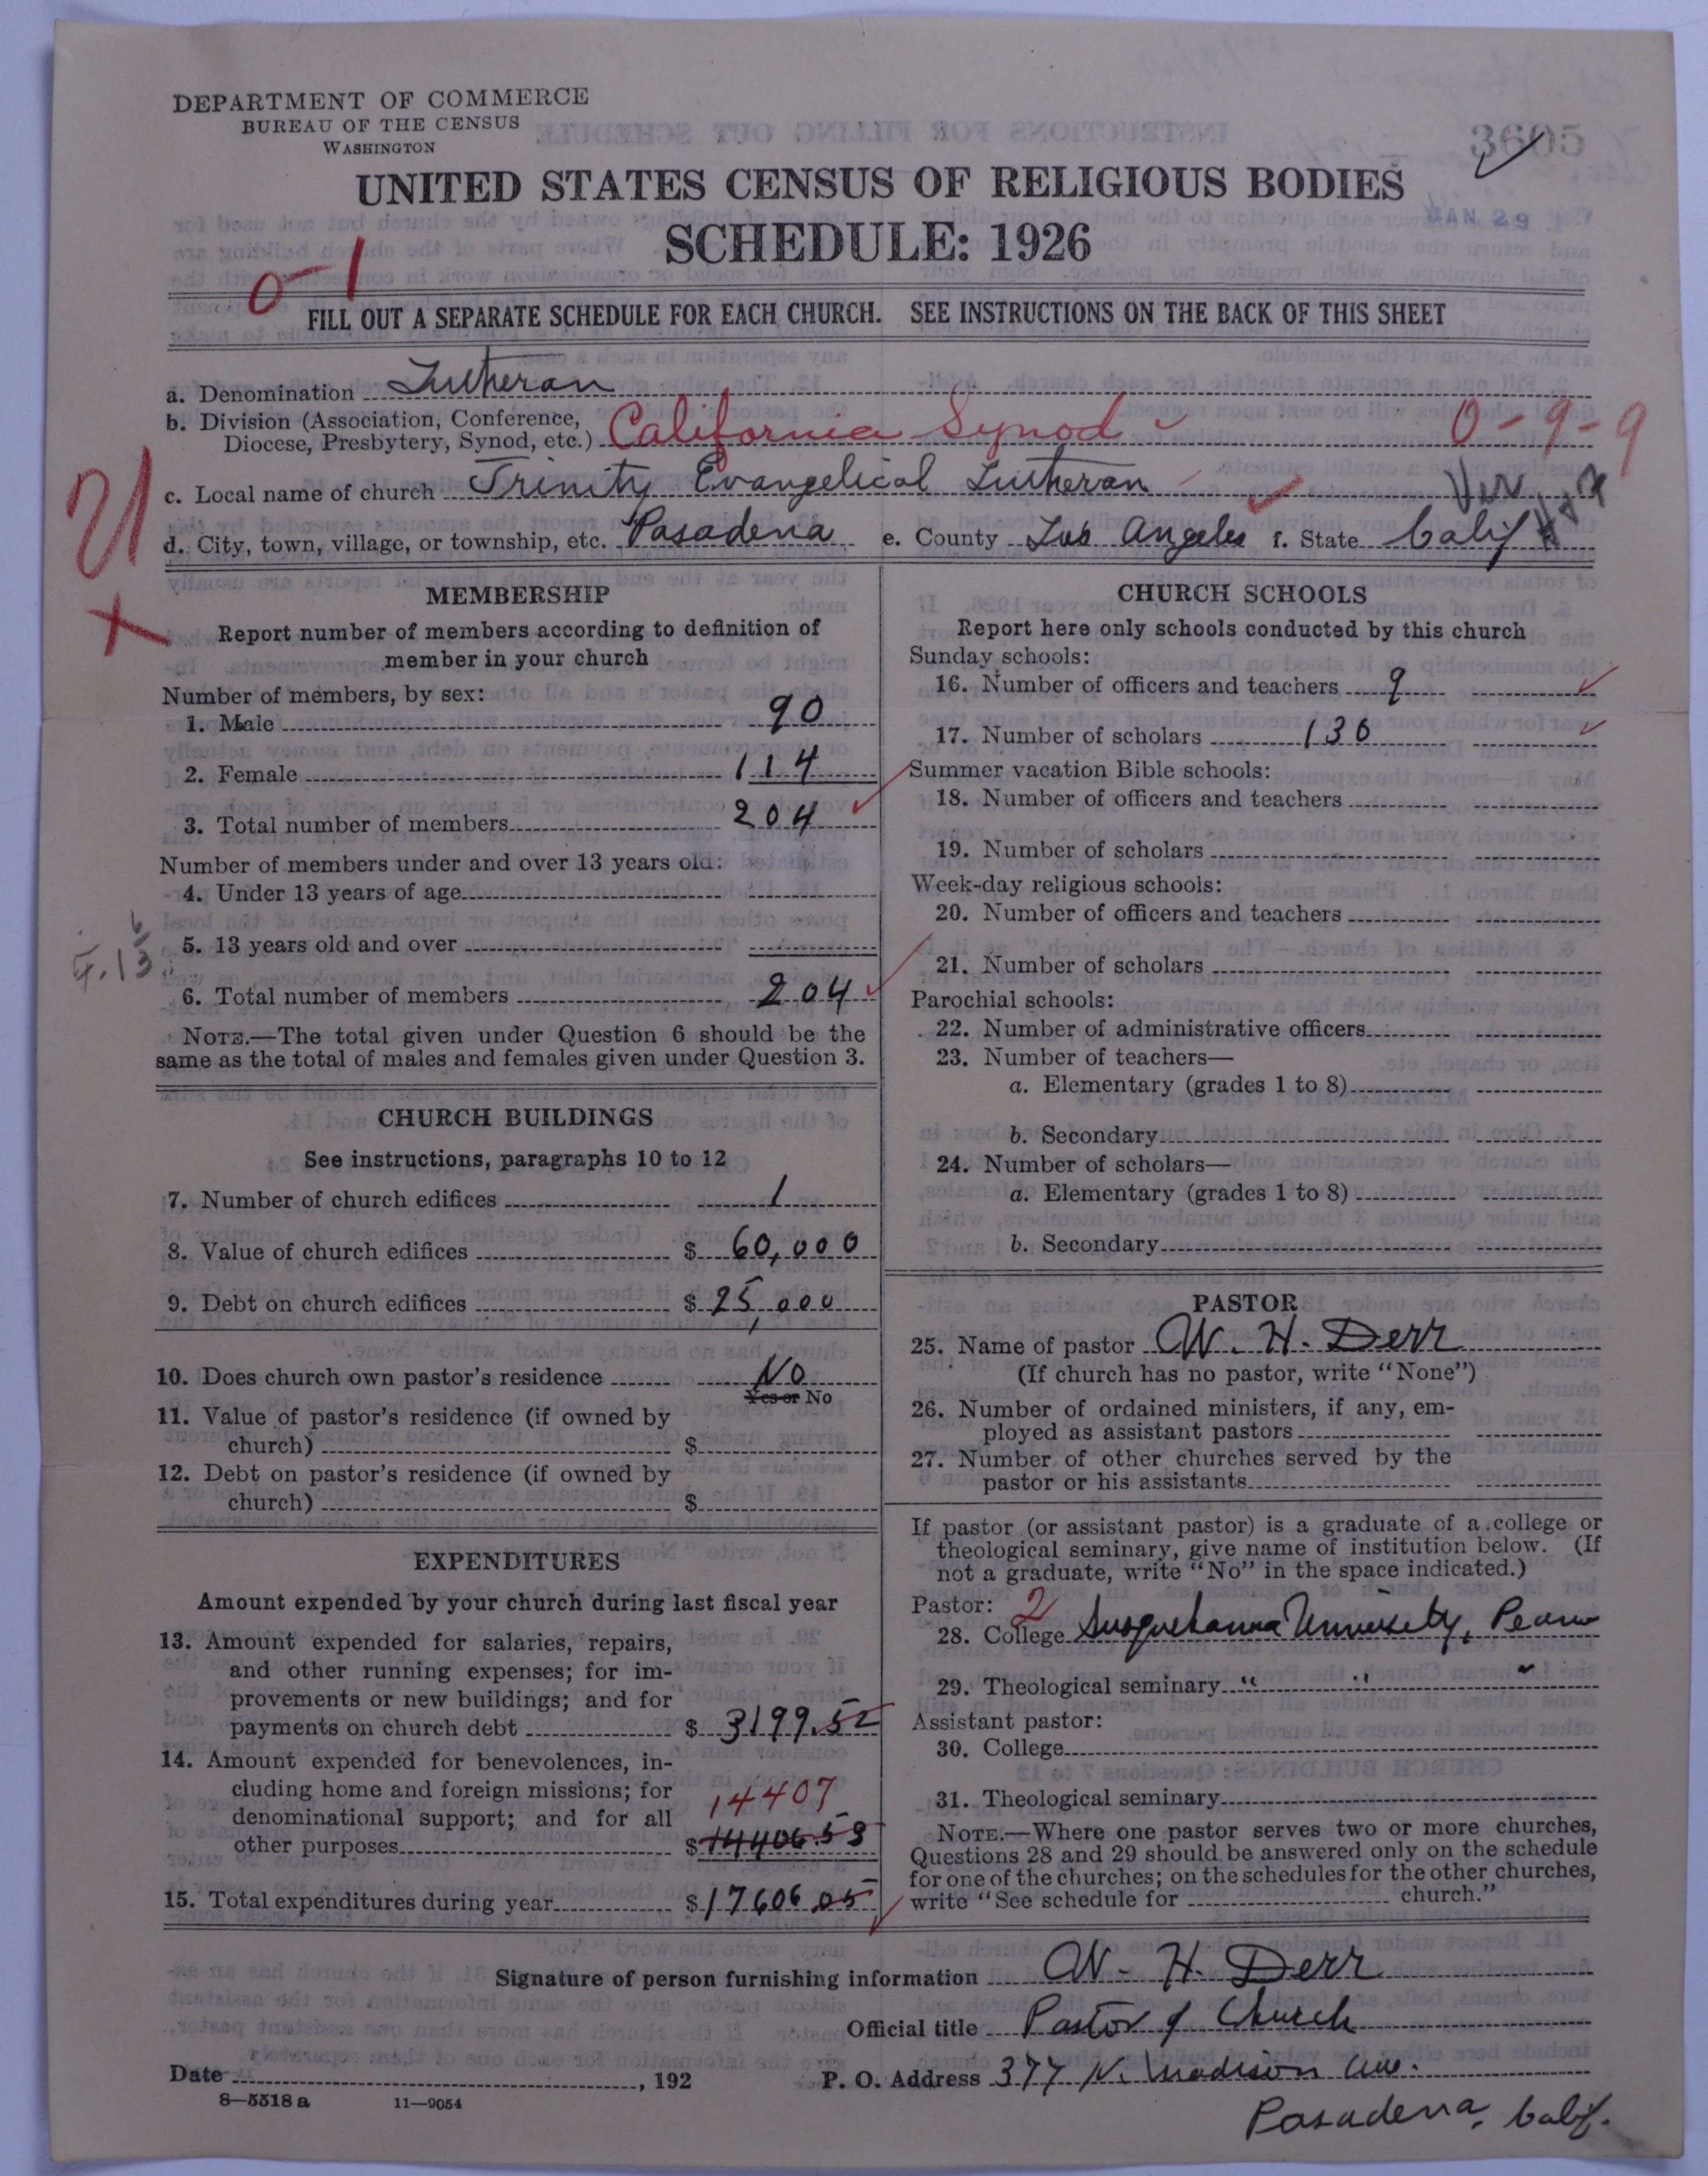 DEPARTMENT OF COMMERCE
BUREAU OF THE CENSUS
WASHINGTON
3605
UNITED STATES CENSUS OF RELIGIOUS BODIES
JAN 29
SCHEDULE: 1926
0-1
FILL OUT A SEPARATE SCHEDULE FOR EACH CHURCH. SEE INSTRUCTIONS ON THE BACK OF THIS SHEET
a. Denomination Lutheran
b. Division (Association, Conference,
Diocese, Presbytery, Synod, etc.) California Synod 0-9-9
c. Local name of church Trinity Evangelical Lutheran
d. City, town, village, or township, etc. Pasadena e. County Los Angeles f. State Calif
MEMBERSHIP
Report number of members according to definition of
member in your church
Number of members, by sex:
1. Male 90
2. Female 114
3. Total number of members 204
Number of members under and over 13 years old:
4. Under 13 years of age
5. 13 years old and over
6. Total number of members 204
NOTE.—The total given under Question 6 should be the
same as the total of males and females given under Question 3.
CHURCH BUILDINGS
See instructions, paragraphs 10 to 12
7. Number of church edifices 1
8. Value of church edifices $ 60,000
9. Debt on church edifices $ 25,000
10. Does church own pastor's residence No
Yes or No
11. Value of pastor's residence (if owned by
church) $
12. Debt on pastor's residence (if owned by
church) $
EXPENDITURES
Amount expended by your church during last fiscal year
13. Amount expended for salaries, repairs,
and other running expenses; for im-
provements or new buildings; and for
payments on church debt $ 3199.52
14. Amount expended for benevolences, in-
cluding home and foreign missions; for
denominational support; and for all
14407
other purposes $ 14406.53
15. Total expenditures during year $ 17606.05
CHURCH SCHOOLS
Report here only schools conducted by this church
Sunday schools:
16. Number of officers and teachers 9
17. Number of scholars 130
Summer vacation Bible schools:
18. Number of officers and teachers
19. Number of scholars
Week-day religious schools:
20. Number of officers and teachers
21. Number of scholars
Parochial schools:
22. Number of administrative officers
23. Number of teachers—
a. Elementary (grades 1 to 8)
b. Secondary
24. Number of scholars—
a. Elementary (grades 1 to 8)
b. Secondary
PASTOR
25. Name of pastor W. H. Derr
(If church has no pastor, write "None")
26. Number of ordained ministers, if any, em-
ployed as assistant pastors
27. Number of other churches served by the
pastor or his assistants
If pastor (or assistant pastor) is a graduate of a college or
theological seminary, give name of institution below. (If
not a graduate, write "No" in the space indicated.)
Pastor: 2
28. College Susquehanna University, Penna
29. Theological seminary " " "
Assistant pastor:
30. College
31. Theological seminary
NOTE.—Where one pastor serves two or more churches,
Questions 28 and 29 should be answered only on the schedule
for one of the churches; on the schedules for the other churches,
write "See schedule for church."
Signature of person furnishing information W. H. Derr
Official title Pastor of Church
Date , 192
P. O. Address 377 N. Madison Ave.
Pasadena, Calif.
8—5518 a 11—9054